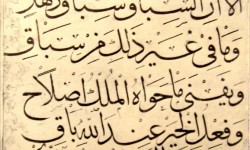 الا ان السباق سباق زهد
وما في غير ذلك من سباق
ويفنى ما حواه الملك اصلا
وفعل الخير عند الله باق